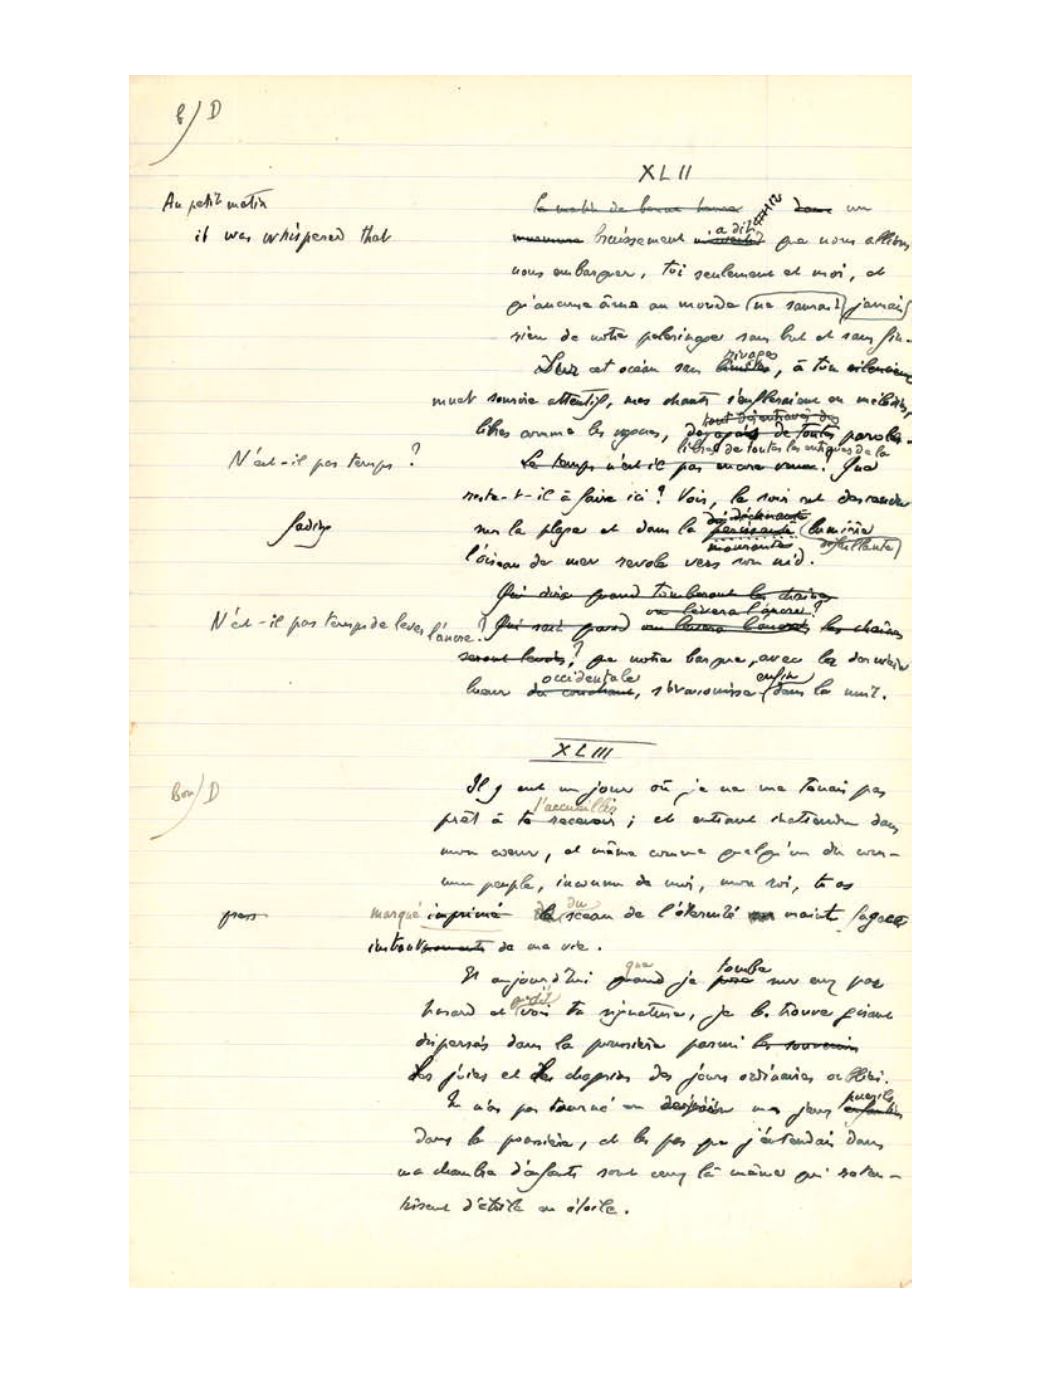 B/D
XLII
Au petit matin
le matin de bonne heure dans un
it was whispered that
murmure bruissement a dit que nous allions
nous embarquer, toi seulement et moi, et
qu'aucune âme au monde ne saurait jamais
rien de notre pèlerinage sans but et sans fin.
rivages
Sur cet océan sans limites, à ton silencieux
muet sourire attentif, mes chants s'enfleraient en mélodies,
tout désentravés des
libres comme les vagues, de toutes paroles.
libres de toutes les entraves de la
N'est-il pas temps ?
Le temps n'est-il pas encore venu? Que
reste-t-il à faire ici ? Vois, le soir est descendu
fading
sur la plage et dans la lumière
mourante défaillante
l'oiseau de mer revole vers son nid.
Qui dira quand tomberont les chaînes
on lèvera l'ancre ?
N'est-il pas temps de lever l'ancre ?
Qui sait quand on lèvera l'ancre les chaînes
seront levées ? que notre barque, avec la dernière
occidentale enfin
lueur du couchant, s'évanouisse dans la nuit.
XLIII
Bon/D
Il y eut un jour où je ne me tenais pas
t'accueillir
prêt à te recevoir ; et entrant inattendu dans
mon cœur, et même comme quelqu'un du com-
mun peuple, inconnu de moi, mon roi, tu as
press
marqué imprimé le du sceau de l'éternité maint fugace
instants de ma vie.
que tombe
Et aujourd'hui quand je pose sur eux par
hasard et vois ta signature, je les trouve gisant
dispersés dans la poussière parmi les souvenirs
des joies et des chagrins des jours ordinaires oubliés.
puérils
Tu n'as pas tourné en dérision mes jeux enfantins
dans la poussière, et les pas que j'entendais dans
ma chambre d'enfants sont ceux là même qui reten-
tissent d'étoile en étoile.